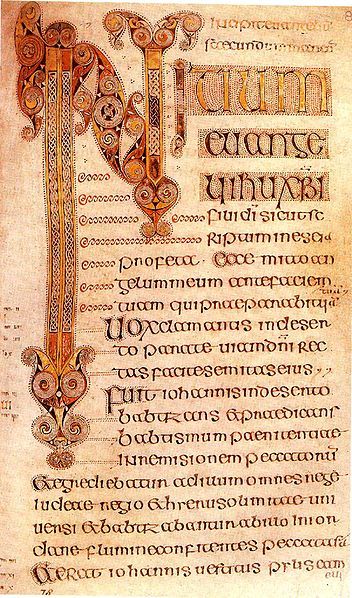 secundum
INITIUM
EUANGE
LII IHU XRI
fili di sicut sc
riptum in esaia
profeta · Ecce mitto an
gelum meum ante faciem
tuam qui praeparabit uiam
Uox clamantis in deser
to parate uiam dni rec
tas facite semitas eius
Fuit iohannis in deserto
babtizans & praedicans
babtismum paenitentiae
in remisionem peccatorum
& egrediebatur ad illum omnes
iudeae regio & hierusolimitae uni
uersi & babtizabantur ab illo in ior
dane flumine confitentes peccata sua
& erat iohannis uestitus pilis cam